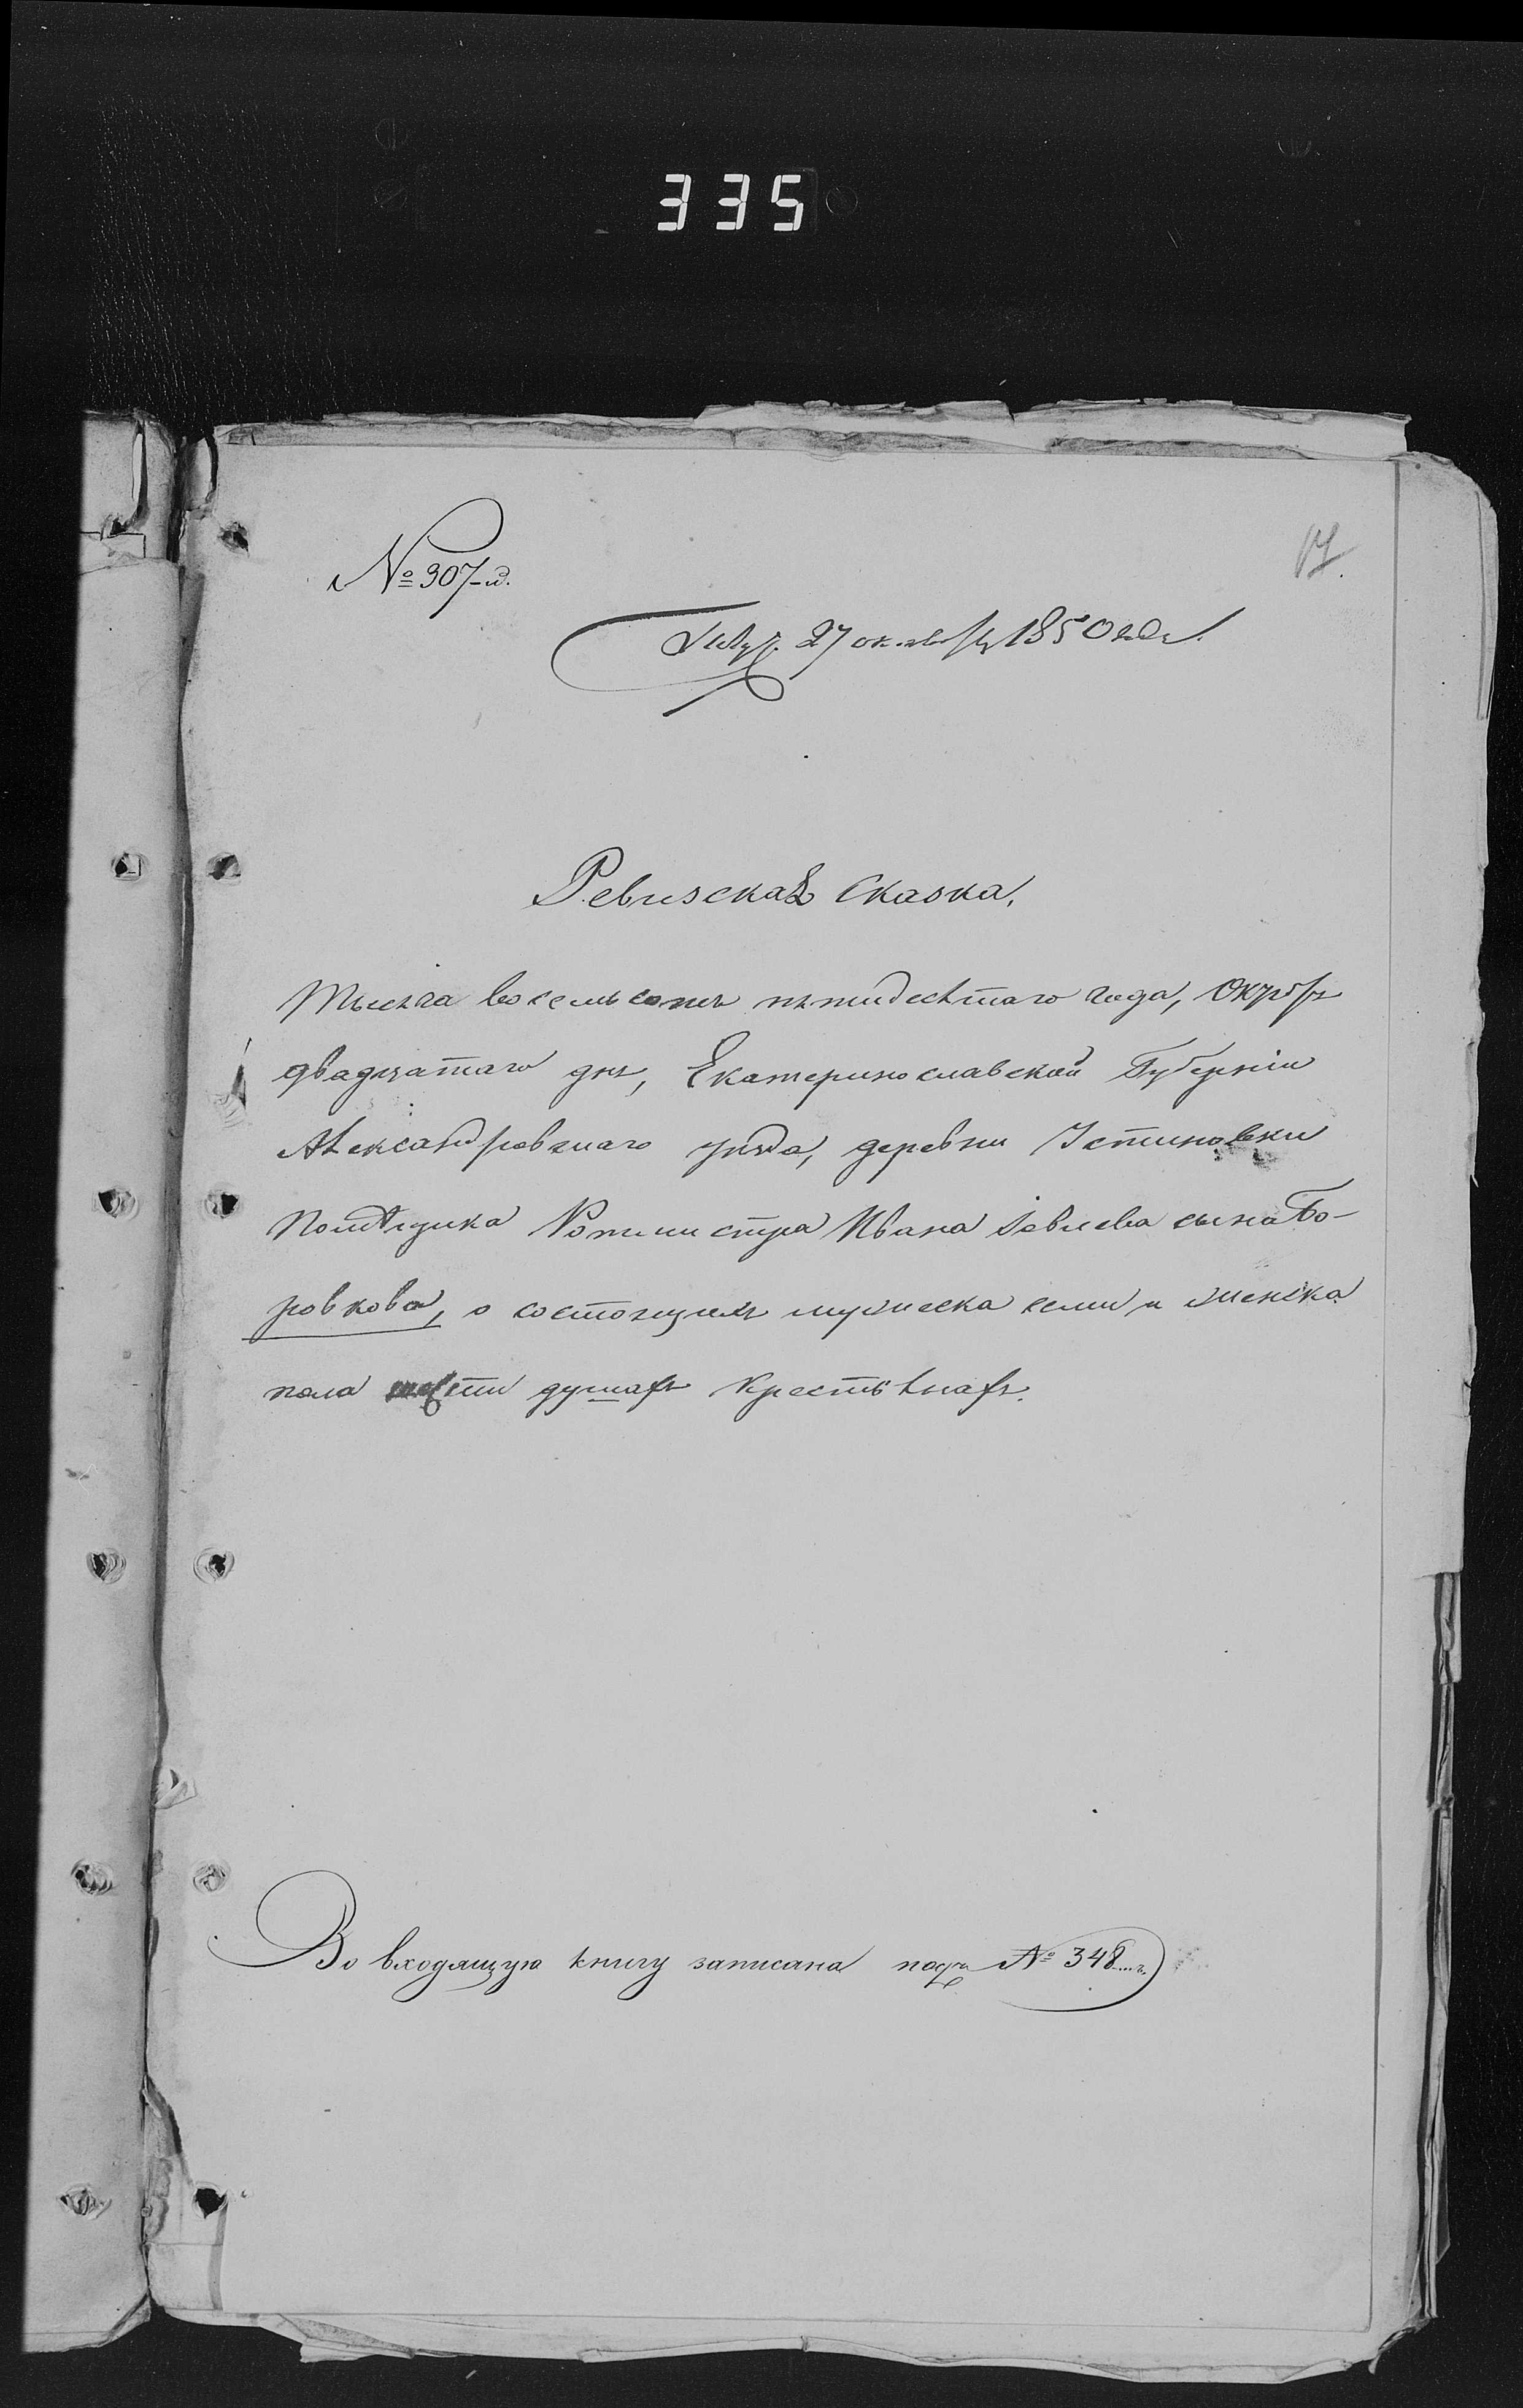 335
17.
№ 307-й.
Получ. 27 октября 1850 года.
Ревизская Сказка,
Тысяча восемьсотъ пятидесятаго года, Октября
двадцатаго дня, Екатеринославской Губерніи
Александровскаго уѣзда, деревни Устиновки
Помѣщика Ротмистра Ивана Іовлева сына Бо-
ровкова, о состоящихъ мужеска семи и женска
пола шести душахъ Крестьянахъ.
Во входящую книгу записана подъ № 348